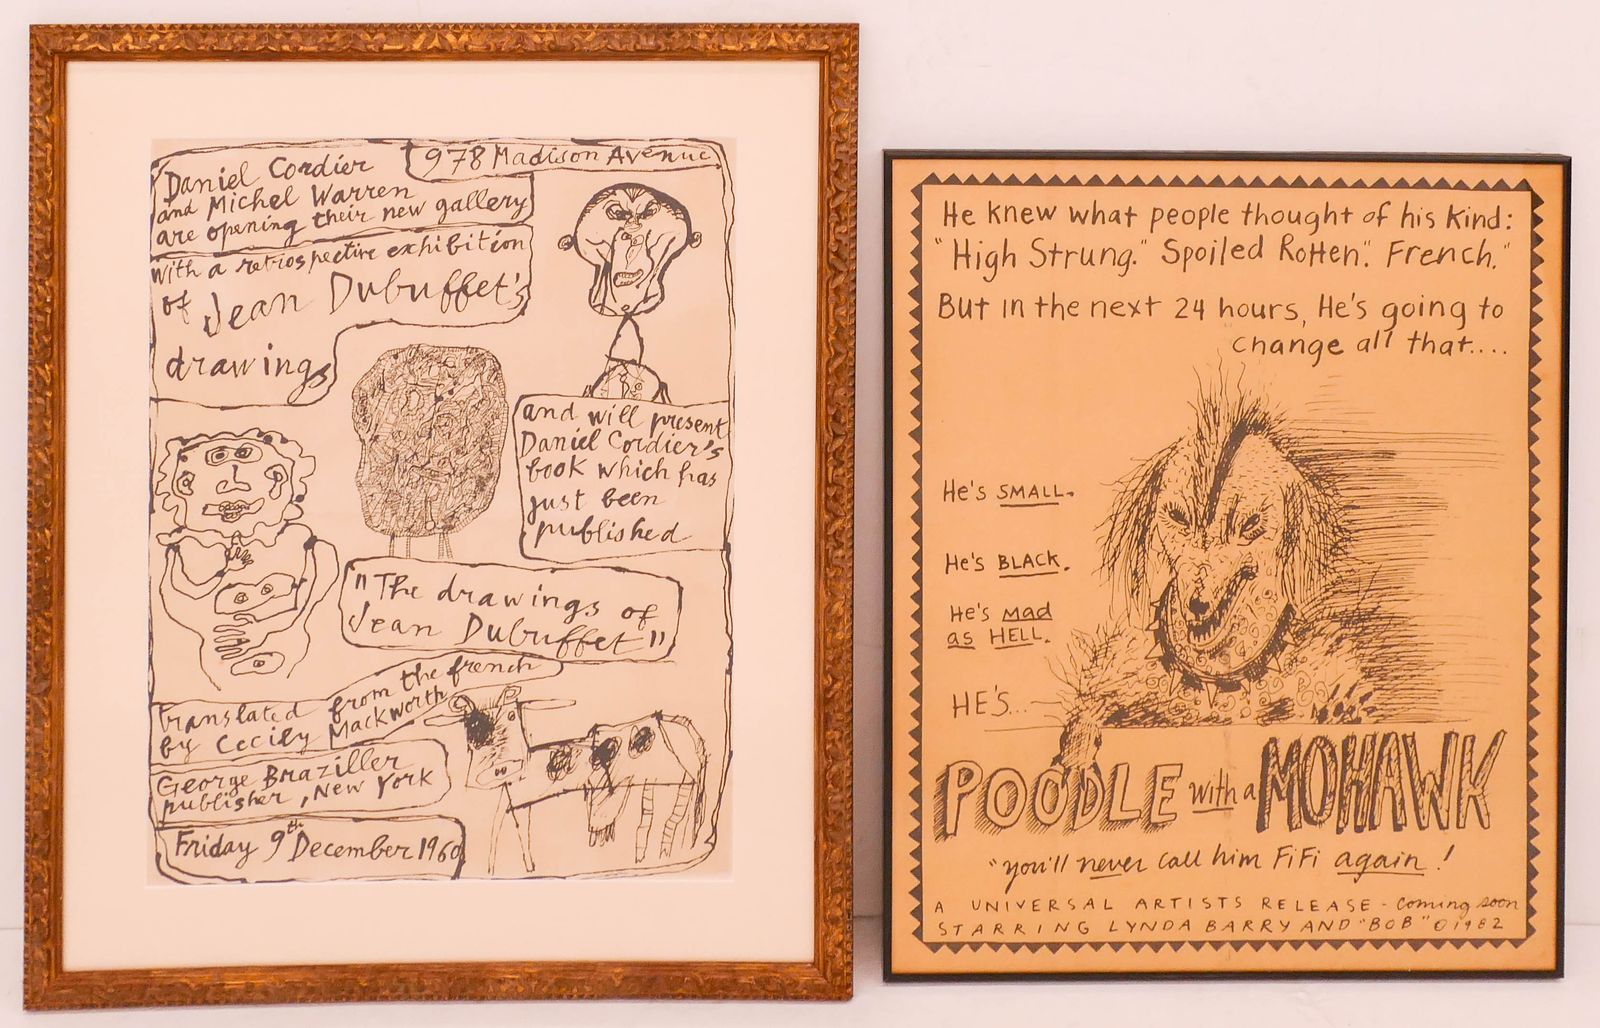 Daniel Cordier
and Michel Warren
are opening their new gallery
978 Madison Avenue
with a retrospective exhibition
of Jean Dubuffet's
drawings
and will present
Daniel Cordier's
book which has
just been
published
"The drawings of
Jean Dubuffet"
translated from the french
by Cecily Mackworth
George Braziller
publisher, New York
Friday 9th December 1960
He knew what people thought of his kind:
"High Strung." Spoiled Rotten." French."
But in the next 24 hours, He's going to
change all that....
He's SMALL.
He's BLACK.
He's mad
as HELL.
HE'S...
POODLE with a MOHAWK
"you'll never call him FiFi again!
A UNIVERSAL ARTISTS RELEASE - coming soon
STARRING LYNDA BARRY AND "BOB" © 1982